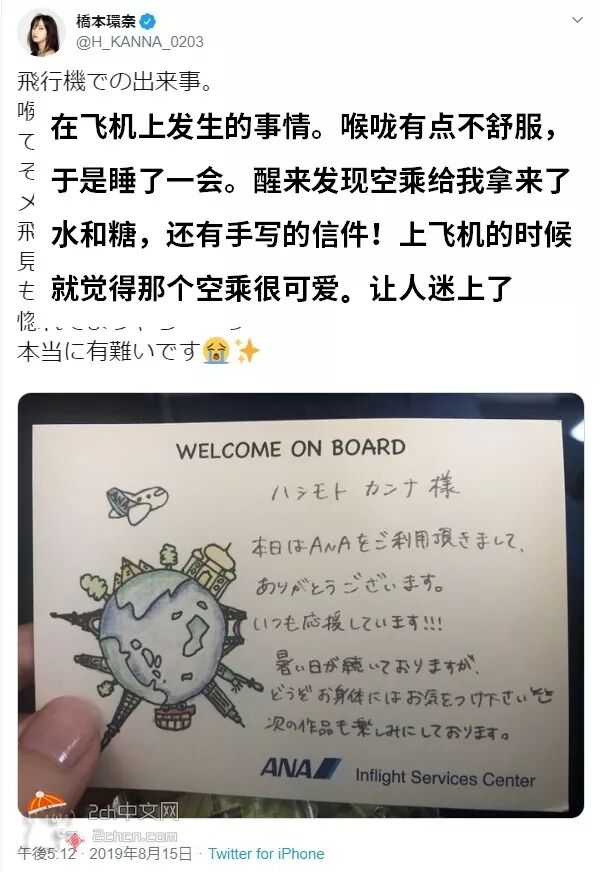 橋本環奈
@H_KANNA_0203
飛行機での出来事。
喉
て
そ
メ
飛
見
も
在飞机上发生的事情。喉咙有点不舒服，
于是睡了一会。醒来发现空乘给我拿来了
水和糖，还有手写的信件！上飞机的时候
就觉得那个空乘很可爱。让人迷上了
本当に有難いです😭✨
WELCOME ON BOARD
ハシモト カンナ 様
ANA
本日はANAをご利用頂きまして、
ありがとうございます。
いつも応援しています!!!
暑い日が続いておりますが、
どうぞお身体にはお気をつけ下さい
次の作品も楽しみにしております。
ANA Inflight Services Center
2ch中文网
2chcn.com
午後5:12 · 2019年8月15日 · Twitter for iPhone